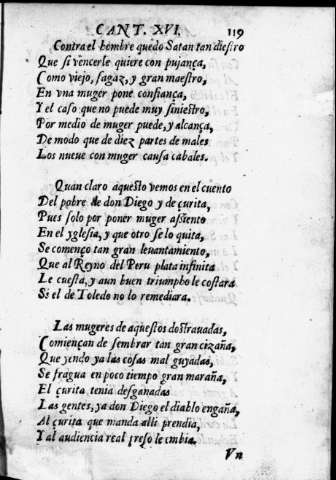 CANT. XVI. 119
Contra el hombre quedo Satan tan diestro
Que si vencerle quiere con pujança,
Como viejo, sagaz, y gran maestro,
En vna muger pone confiança,
Y el caso que no puede muy siniestro,
Por medio de muger puede, y alcança,
De modo que de diez partes de males
Los nueue con muger causa cabales.
Quan claro aquesto vemos en el cuento
Del pobre de don Diego y de çurita,
Pues solo por poner muger assiento
En el yglesia, y que otro se lo quita,
Se començo tan gran leuantamiento,
Que al Reyno del Peru plata infinita
Le cuesta, y aun buen triumpho le costara
Si el de Toledo no lo remediara.
Las mugeres de aquestos dos trauadas,
Comiençan de sembrar tan gran cizaña,
Que yendo ya las cosas mal guyadas,
Se fragua en poco tiempo gran maraña,
El çurita tenia desganadas
Las gentes, ya don Diego el diablo engaña,
Al çurita que manda alli prendia,
Y al audiencia real preso le embia.
Vn